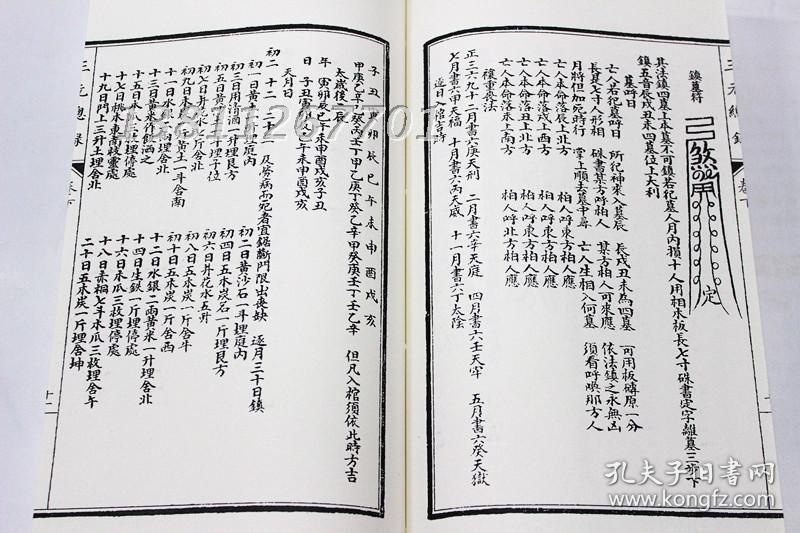 三元總錄
卷下
鎮墓符
定
其法鎮四墓上本墓不可鎮若犯墓人月內損十人用柏木板長七寸硃書定字離墓三步下
鎮五音辰戌丑未四墓位上大利
墓呼日
亡人若犯墓呼日 所犯神來入墓辰 辰戌丑未為四墓 可用板磚原一分
長是七寸人形相 硃書某方呼柏人 某方柏人可來應 依法鎮之永無凶
月將但加死時行 掌上順去墓中尋 亡人生相入何墓 須看呼喚那方人
亡人本命落辰上北方 柏人呼東方柏人應
亡人本命落戌上南方 柏人呼東方柏人應
亡人本命落丑上北方 柏人呼東方柏人應
亡人本命落未上南方 柏人呼北方柏人應
複重喪法
正三六九十二月書六庚天刑 二月書六辛天庭 四月書六壬天牢 五月書六癸天獄
七月書六甲天福 十月書六丙天威 十一月書六丁太陰
逐日入棺吉時
子丑寅卯辰巳午未申酉戌亥
甲庚乙辛乙癸丙壬丁甲乙庚丁癸乙辛甲癸庚壬丁壬乙辛 但凡入棺須依此時方吉
太歲後一辰
年 寅卯辰巳午未申酉戌亥子丑
日 子丑寅卯辰巳午未申酉戌亥
天月日
初二 十二 二十二 及勞病而死者宜鋸斷門限出喪缺 逐月三十日鎮
初一日黃米一升埋庭內 初二日黃沙石一斗埋庭內
初三日用清酒一升埋艮方 初四日五木炭石一斤埋艮方
初五日黃米一升埋子位 初六日井花水五升
初七日井花水七斤舍丑 初八日五木炭一斤舍辛
初九日東流水一斤舍北 初十日五木炭一斤舍西
十一日水銀一兩黃土一斗舍南 十二日水銀二兩黃米一升埋舍北
十三日黃米作飯酒之 十四日生鐵一斤埋停處
十五日水銀一兩埋停處 十六日木瓜三枚埋停處
十七日桃木東南枝靈處 十八日桑桐七年木瓜三枚埋舍午
十九日門上三升土埋舍北 二十日五木炭一斤埋舍坤
三元總錄
卷下
十二
18811267701
孔夫子旧书网
www.kongfz.com